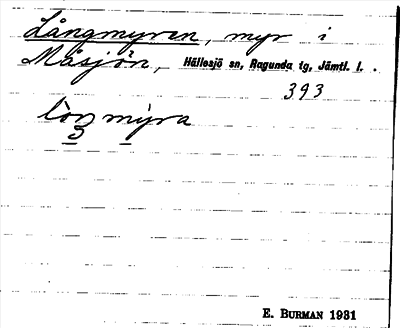 Långmyren, myr i
Måsjön, Hällesjö sn, Ragunda tg, Jämtl. l.
393
lòŋ mýra
E. BURMAN 1931